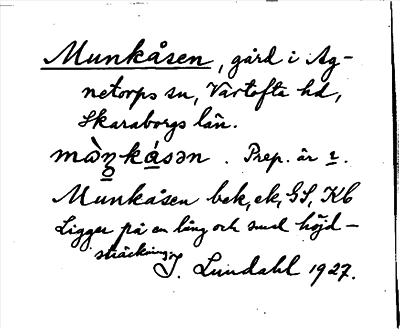 Munkåsen, gård i Ag-
netorps sn, Vartofta hd,
Skaraborgs län.
mὼŋkásən. Prep. är
Munkåsen bek, ek, GS, Kb
Ligger på en lång och smal höjd-
sträckning.
J. Lundahl 1927.